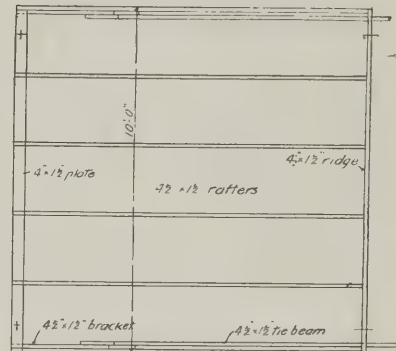 10'-0"
4"×1½" plate
4½"×1½" ridge
4½"×1½" rafters
4½"×1½" bracket
4½"×1½" tie beam